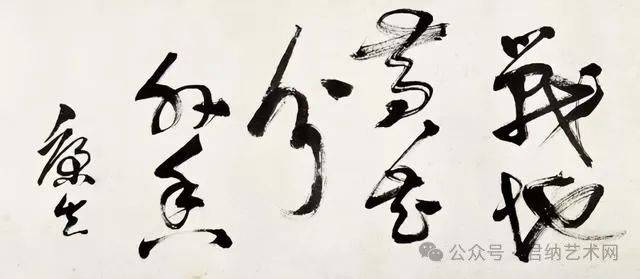 戰地
黃花
分
外香
康生
公众号·君纳艺术网